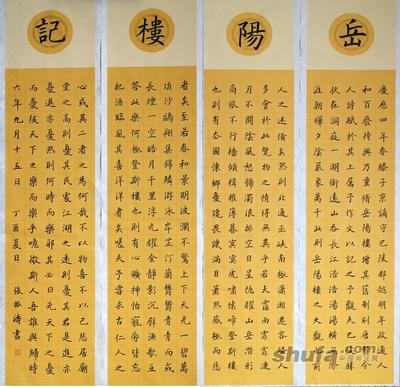 岳
慶曆四年春滕子京謫守巴陵郡越明年政通人
和百廢待興乃重脩岳陽樓增其舊制刻唐賢今
人詩賦於其上屬予作文以記之予觀夫巴陵勝
狀在洞庭一湖銜遠山吞長江浩浩湯湯橫無際
涯朝暉夕陰氣象萬千此則岳陽樓之大觀也前
陽
人之述備矣然則北通巫峽南極瀟湘遷客騷人
多會於此覽物之情得無異乎若夫霪雨霏霏連
月不開陰風怒號濁浪排空日星隱曜山岳潛形
商旅不行檣傾楫摧薄暮冥冥虎嘯猿啼登斯樓
也則有去國懷鄉憂讒畏譏滿目蕭然感極而悲
樓
者矣至若春和景明波瀾不驚上下天光一碧萬
頃沙鷗翔集錦鱗游泳岸芷汀蘭鬱鬱青青而或
長煙一空皓月千里浮光耀金靜影沉璧漁歌互
答此樂何極登斯樓也則有心曠神怡寵辱皆忘
把酒臨風其喜洋洋者矣嗟夫予嘗求古仁人之
記
心或異二者之為何哉不以物喜不以己悲居廟
堂之高則憂其民處江湖之遠則憂其君是進亦
憂退亦憂然則何時而樂耶其必曰先天下之憂
而憂後天下之樂而樂乎噫微斯人吾誰與歸時
六年九月十五日 丁酉夏日 張 書
shufa.com